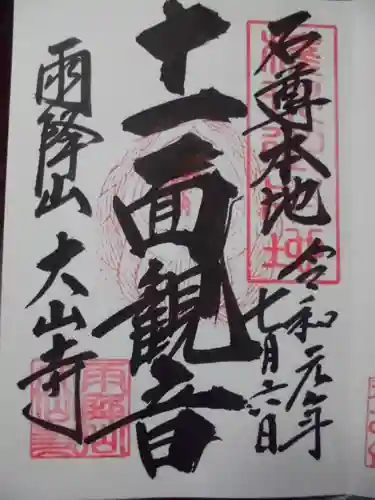 石尊本地
令和元年
七月六日
十一面観音
雨降山
大山寺